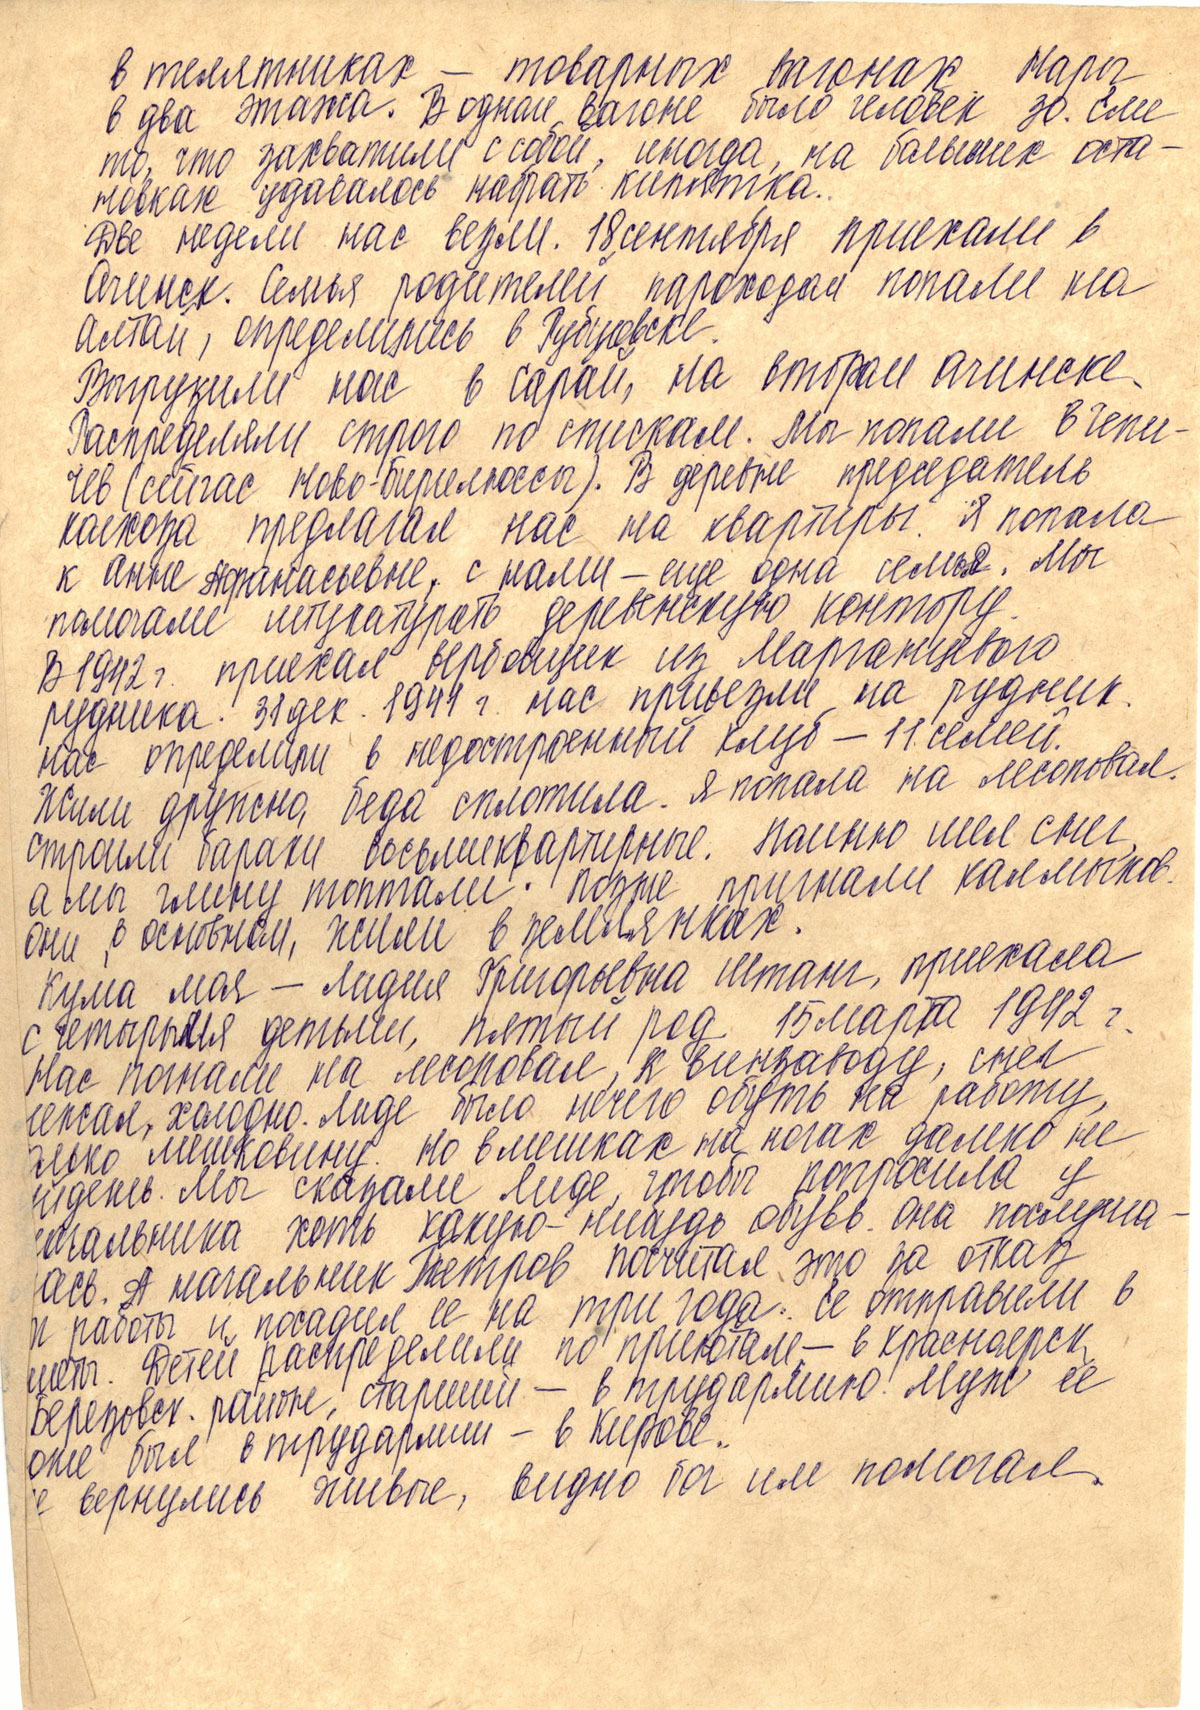 в телятниках — товарных вагонах Нары
в два этажа. В одном вагоне было человек 30. Ели
то, что захватили с собой, иногда, на больших оста-
новках удавалось набрать кипятка.
Две недели нас везли. 18 сентября приехали в
Ачинск. Семья родителей пароходом попали на
Алтай, определились в Рубцовске.
Выгрузили нас в сарай, на втором Ачинске.
Распределяли строго по спискам. Мы попали в
чев (сейчас Ново-Бирилюссы). В деревне председатель
колхоза предлагал нас на квартиры. Я попала
к Анне Афанасьевне, с нами — еще одна семья. Мы
помогали штукатурать деревенскую контору.
В 1942 г. приехал вербовщик из Марганцевого
рудника. 31 дек. 1941 г. нас привезли на рудник.
Нас определили в недостроенный клуб — 11 семей.
Жили дружно, беда сплотила. Я попала на лесоповал.
Строили бараки восьмиквартирные. Помню шел снег,
а мы глину топтали. Позже пригнали калмыков.
Они, в основном, жили в землянках.
Кума моя — Лидия Григорьевна Штанг, приехала
с четырьмя детьми, пятый род 15 марта 1942 г.
Нас погнали на лесоповал, к винзаводу, снег
лежал, холодно. Лиде было нечего обуть на работу,
олько мешковину. Но в мешках на ногах далеко не
йдешь. Мы сказали Лиде, чтобы попросила у
начальника хоть какую-нибудь обувь. Она послуша-
лась. А начальник Петров посчитал это за отказ
от работы и посадил ее на три года. Ее отправили в
Детей распределили по приютам — в Красноярск,
Березовск. районе, старший — в трудармию. Муж ее
оже был в трудармии — в Кирове.
е вернулись живые, видно бог им помогал.